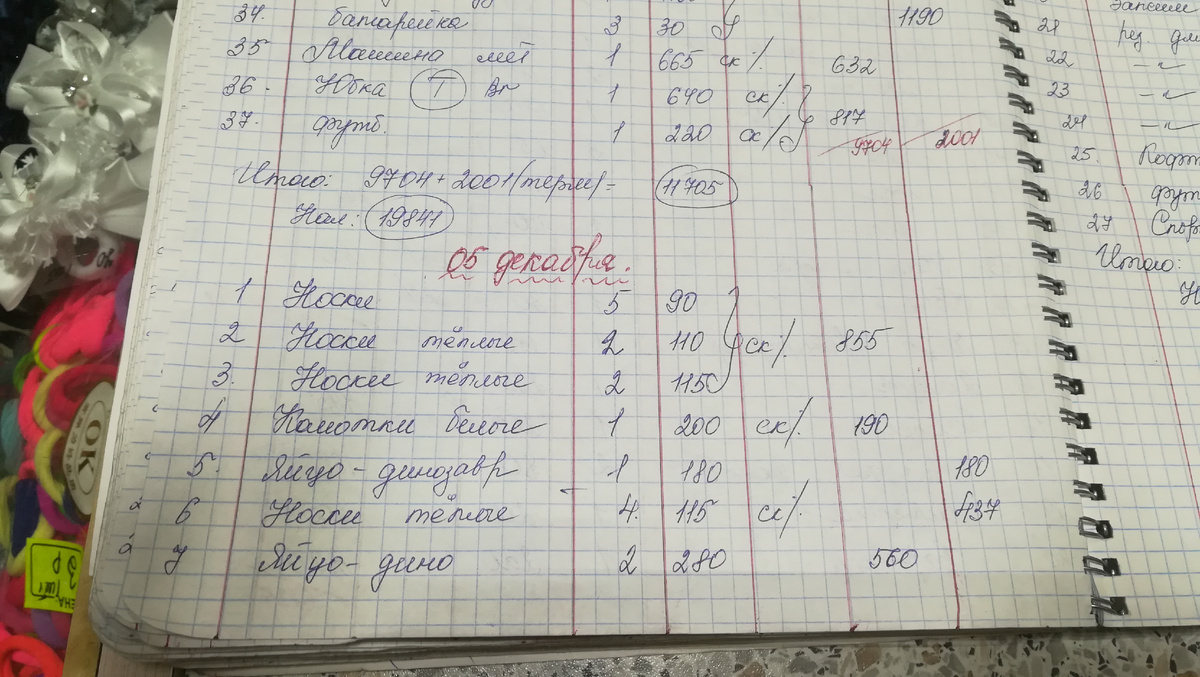 34. батарейка 3 30 1190
35 Машина мет 1 665 ск/. 632
36. Юбка Т Вг 1 640 ск/.
37. футб. 1 220 ск/ 817
9704 2001
Итого: 9704 + 2001 (терм) = 11705
Нал: 19841
05 декабря.
1 Носки 5 90
2 Носки тёплые 2 110 ск/. 855
3. Носки тёплые 2 115
4 Колготки белые 1 200 ск/. 190
5. Яйцо-динозавр 1 180 180
6 Носки тёплые 4. 115 ск/. 437
7 Яйцо-дино 2 280 560
21 рез.
22 -"-
23 -"-
24 -"-
25.
26
27
Итого:
OK